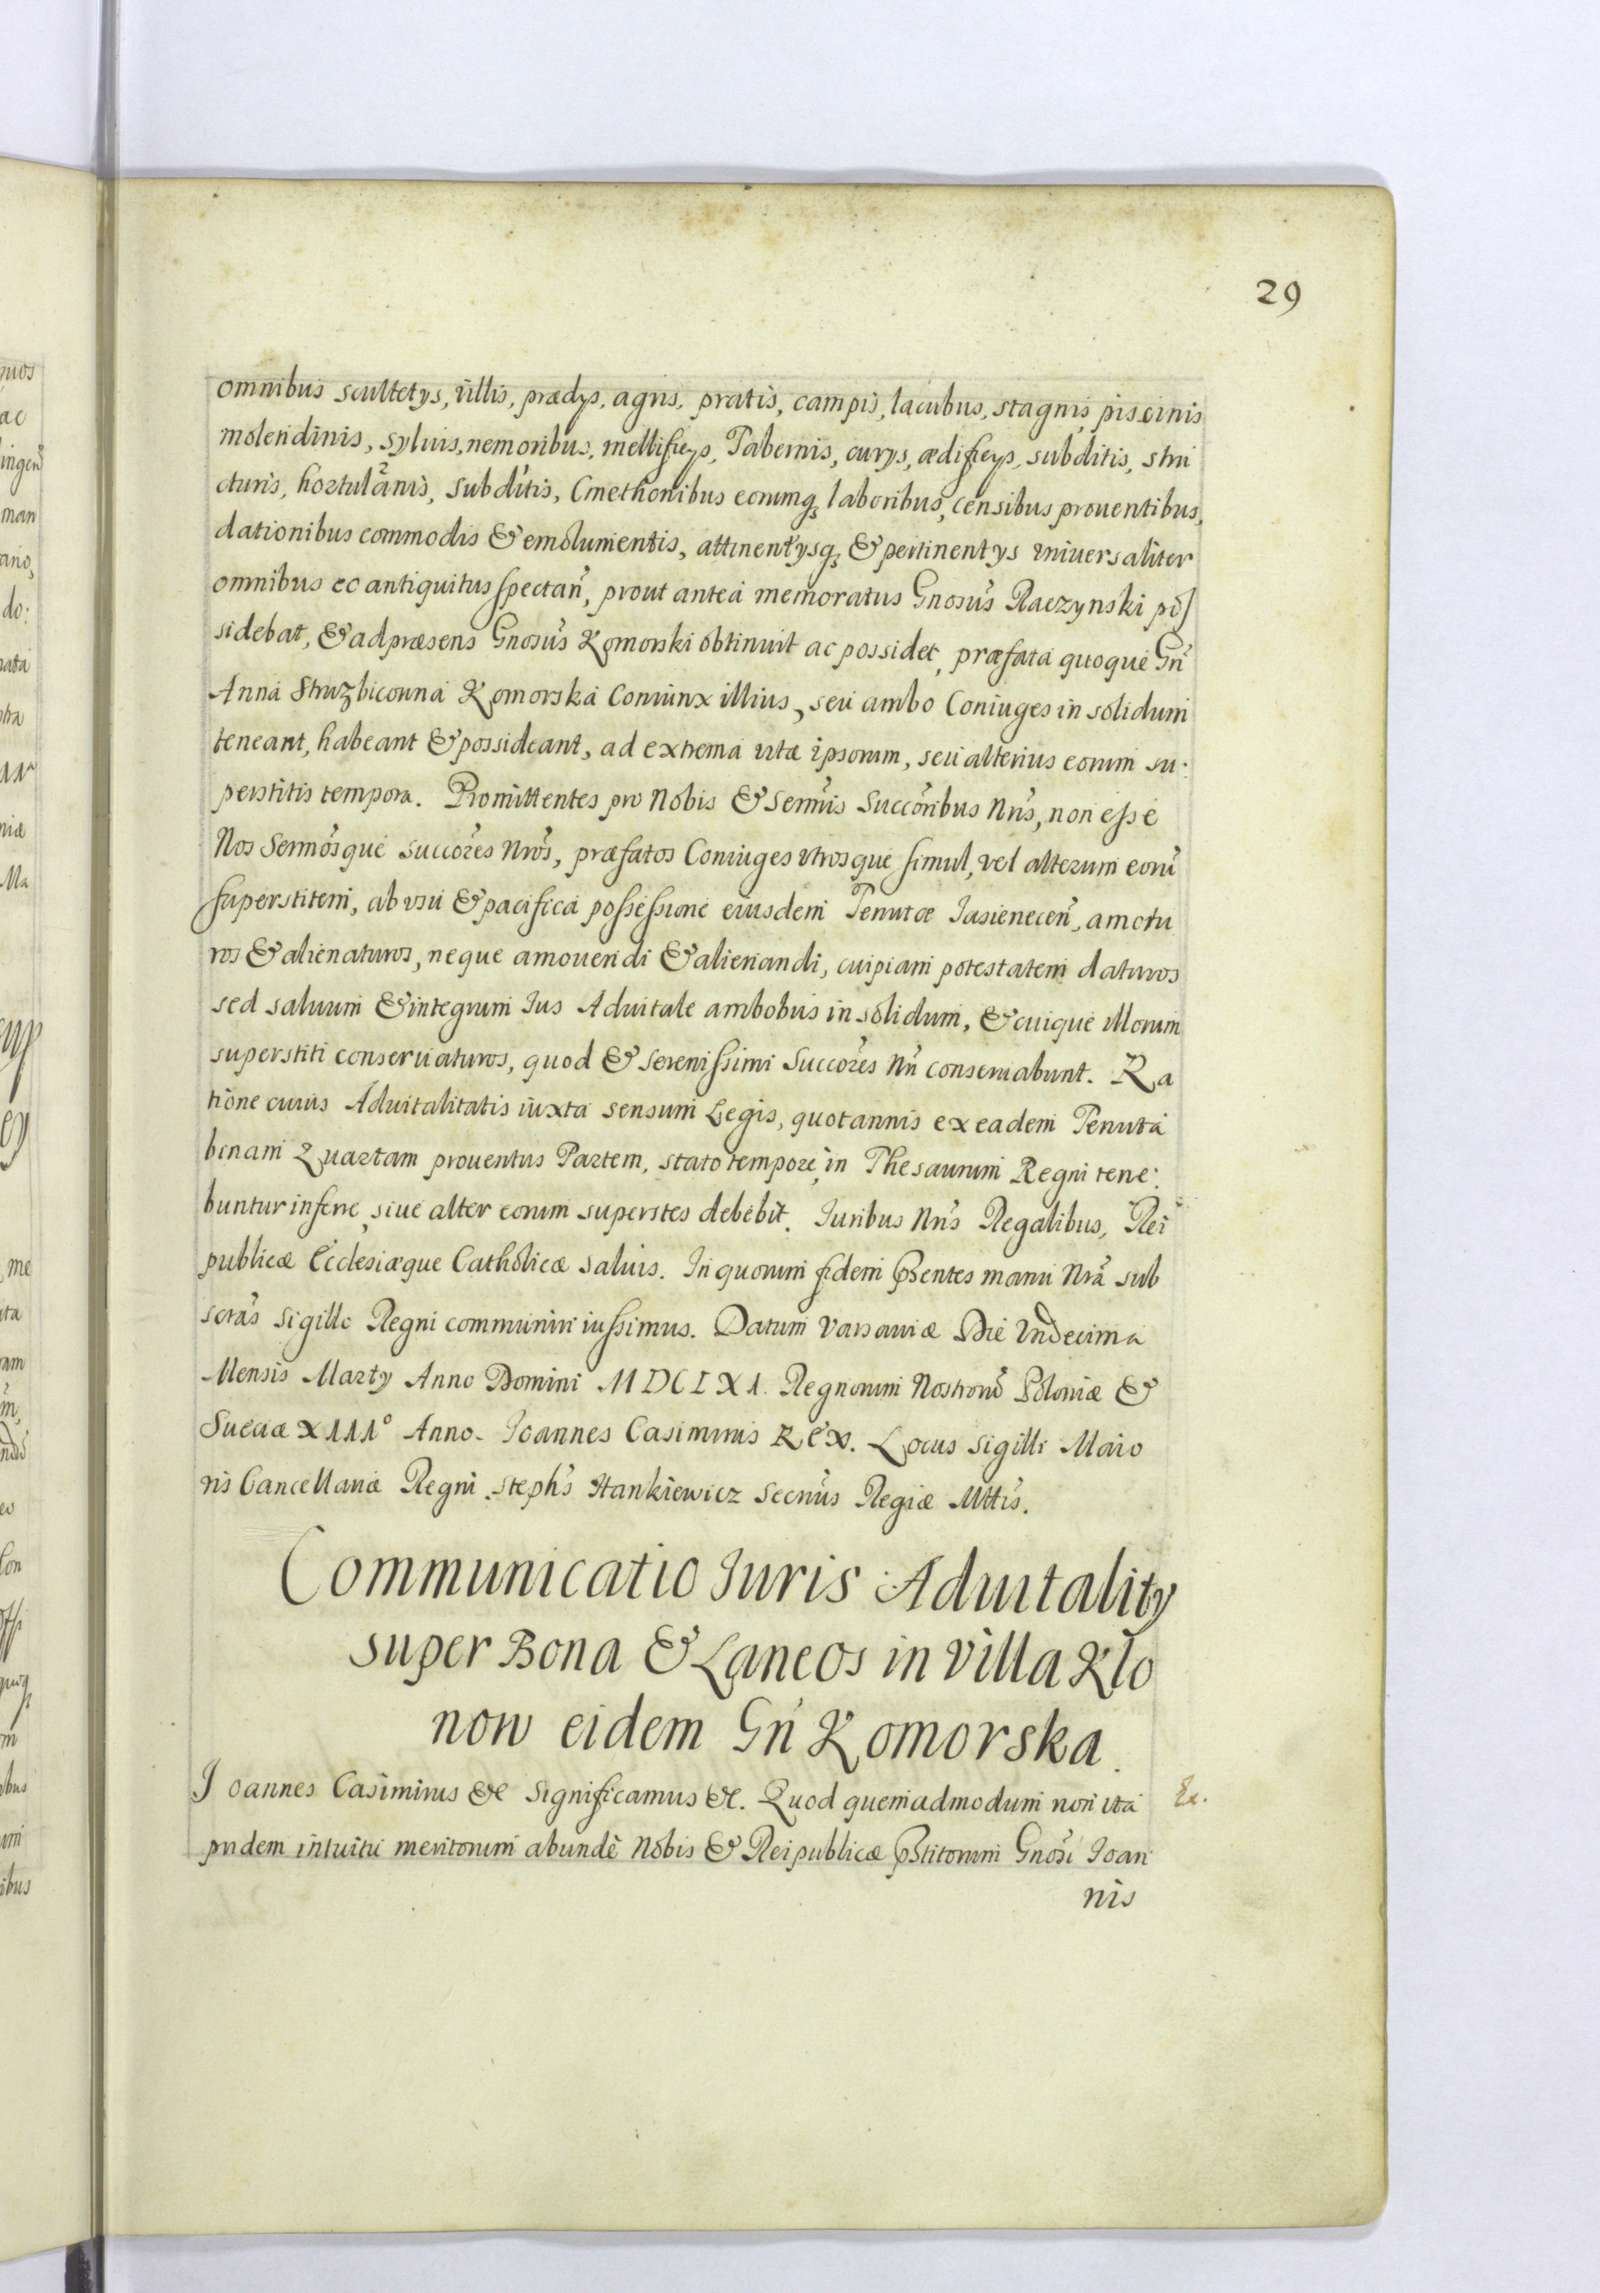 29
omnibus scultetys, villis, prædys, agris, pratis, campis, lacubus, stagnis, piscinis
molendinis, syluis, nemoribus, mellificys, Tabernis, curys, ædificys, subditis, stru
cturis, hortulanis, subditis, Cmethonibus eorumq; laboribus, censibus prouentibus,
dationibus commodis & emolumentis, attinentysq; & pertinentys vniuersaliter
omnibus eo antiquitus spectan̄, prout antea memoratus Gnosus Raczynski pos
sidebat, & ad præsens Gnosus Komorski obtinuit ac possidet, præfata quoque Gn̄
Anna Struzbicouna Komorska Coniunx illius, seu ambo Coniuges in solidum
teneant, habeant & possideant, ad extrema vitæ ipsorum, seu alterius eorum su:
perstitis tempora. Promittentes pro Nobis & Sermis Succoribus Nris, non esse
Nos Sermosque Succores Nros, præfatos Coniuges vtrosque simul, vel alterum eoru
superstitem, ab vsu & pacifica possessione eiusdem Tenutæ Jasienecen̄, amotu
ros & alienaturos, neque amouendi & alienandi, cuipiam potestatem daturos
sed saluum & integrum Ius Aduitale ambobus in solidum, & cuique illorum
superstiti conseruaturos, quod & serenissimi Succores Nri conseruabunt. Ra
tione cuius Aduitalitatis iuxta sensum Legis, quotannis ex eadem Tenuta
binam Quartam prouentus Partem, stato tempore, in Thesaurum Regni tene:
buntur inferre, siue alter eorum superstes debebit. Iuribus Nris Regalibus, Rei
publicæ Ecclesiæque Catholicæ saluis. In quorum fidem p̄sentes manu Nra sub
scras sigillo Regni communiri iussimus. Datum Varsauiæ Die Vndecima
Mensis Marty Anno Domini MDCLXI. Regnorum Nostroru Poloniæ &
Sueciæ XIII° Anno. Ioannes Casimirus REX. Locus Sigilli Maio
ris Cancellariæ Regni. Stephs Hankiewicz Secrius Regiæ Mttis.
Communicatio Iuris Aduitality
super Bona & Laneos in Villa Klo
now eidem Gn̄ Komorska.
Ioannes Casimirus &c Significamus &c. Quod quemadmodum non ita
pridem intuitu meritorum abundè Nobis & Reipublicæ p̄stitorum Gnosi Ioan
nis